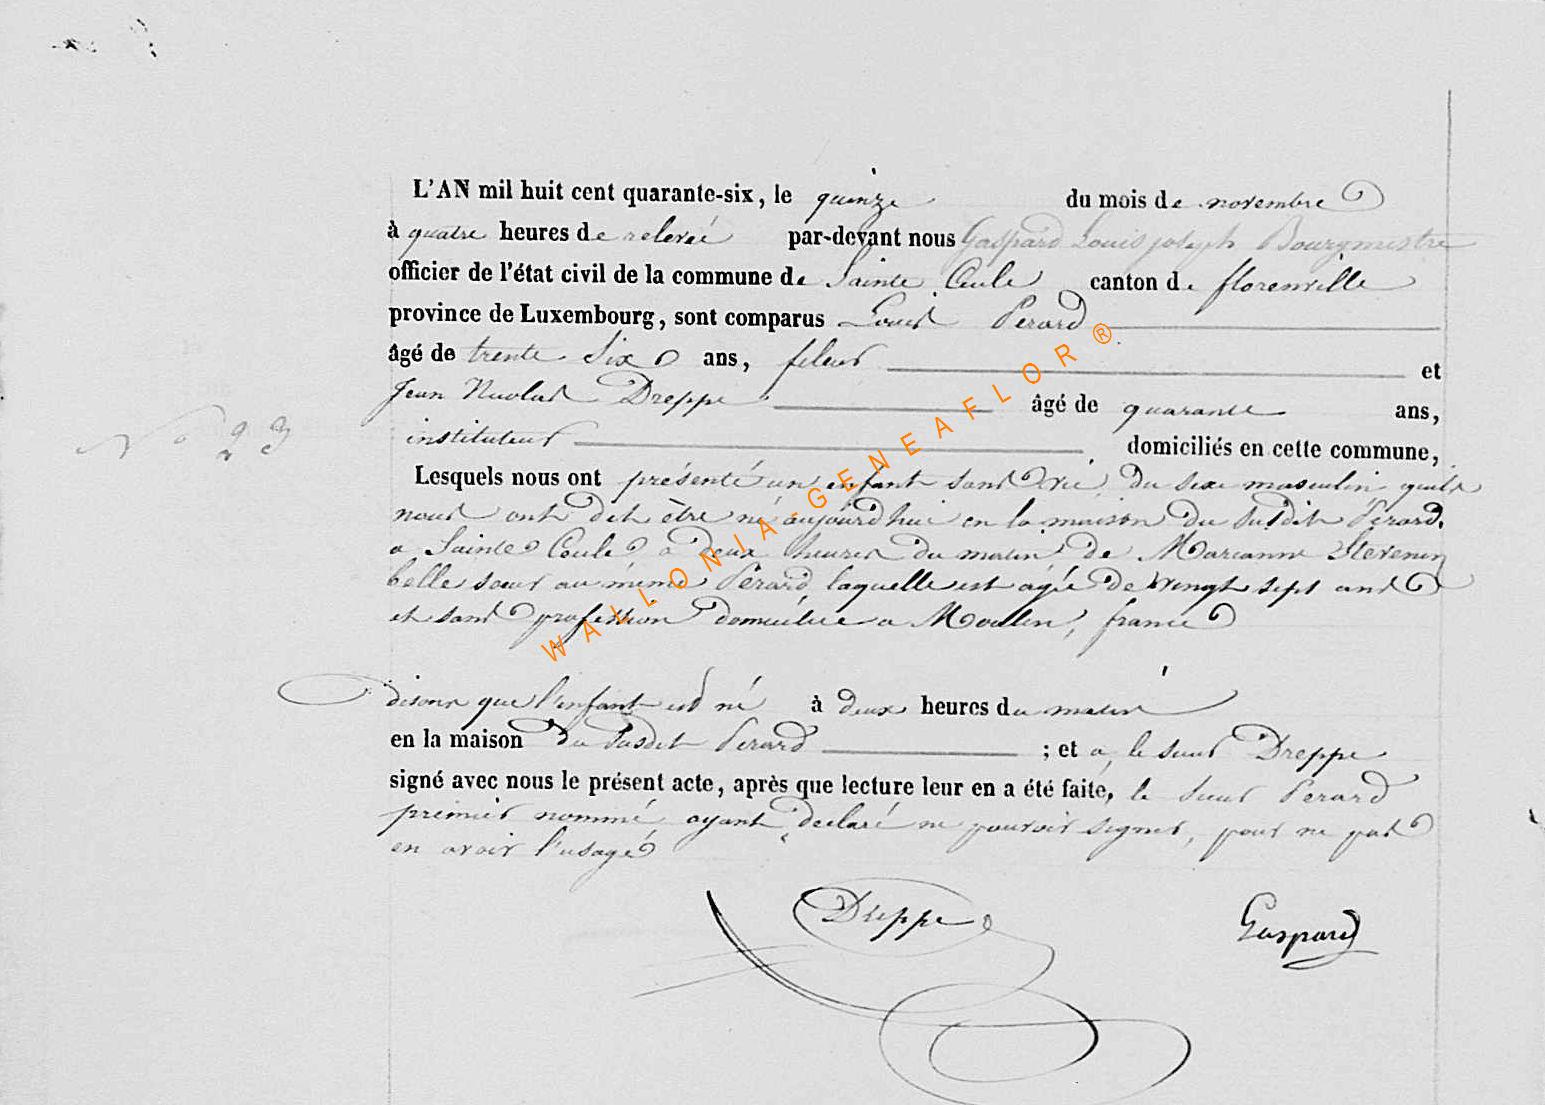 L'AN mil huit cent quarante-six, le quinze du mois de novembre
à quatre heures de relevée par-devant nous Gaspard Louis joseph Bourgmestre
officier de l'état civil de la commune de Sainte Cecile canton de florenville
province de Luxembourg, sont comparus Louis Perard
âgé de trente Six ans, fileur et
Jean Nicolas Dreppe âgé de quarante ans,
instituteur domiciliés en cette commune,
No 23
Lesquels nous ont présenté un enfant sans vie, du sexe masculin quils
nous ont dit être né aujourd'hui en la maison du susdit Perard,
a Sainte Cecile a deux heures du matin de Marianne Stevenin
belle sœur au même Perard, laquelle est agée de vingt sept ans
et sans profession domiciliée a france
disons que l'enfant est né à deux heures du matin
en la maison du susdit Perard ; et a, le sieur Dreppe
signé avec nous le présent acte, après que lecture leur en a été faite, le sieur Perard
premier nommé ayant declaré ne pouvoir signer, pour ne pas
en avoir l'usage
Dreppe Gaspard
WALLONIA-GENEAFLOR®